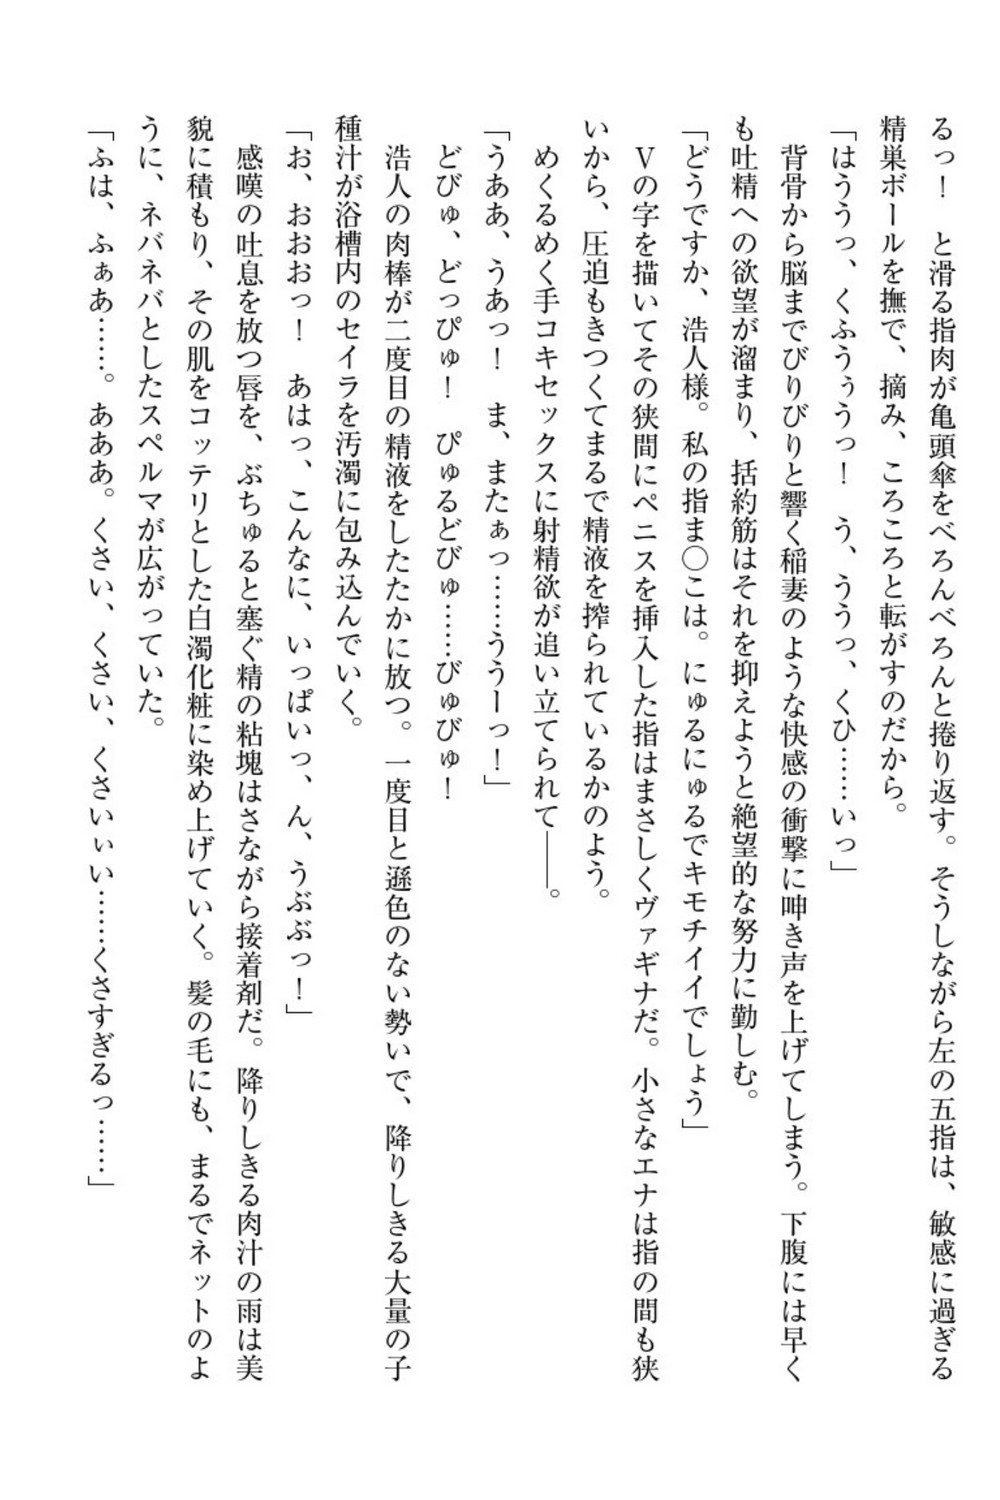 るっ！　と滑る指肉が亀頭傘をべろんべろんと捲り返す。そうしながら左の五指は、敏感に過ぎる
精巣ボールを撫で、摘み、ころころと転がすのだから。
「はううっ、くふうぅうっ！　う、ううっ、くひ……いっ」
　背骨から脳までびりびりと響く稲妻のような快感の衝撃に呻き声を上げてしまう。下腹には早く
も吐精への欲望が溜まり、括約筋はそれを抑えようと絶望的な努力に勤しむ。
「どうですか、浩人様。私の指ま〇こは。にゅるにゅるでキモチイイでしょう」
　Ｖの字を描いてその狭間にペニスを挿入した指はまさしくヴァギナだ。小さなエナは指の間も狭
いから、圧迫もきつくてまるで精液を搾られているかのよう。
　めくるめく手コキセックスに射精欲が追い立てられて――。
「うああ、うあっ！　ま、またぁっ……ううーっ！」
　どびゅ、どっぴゅ！　ぴゅるどびゅ……びゅびゅ！
　浩人の肉棒が二度目の精液をしたたかに放つ。一度目と遜色のない勢いで、降りしきる大量の子
種汁が浴槽内のセイラを汚濁に包み込んでいく。
「お、おおおっ！　あはっ、こんなに、いっぱいっ、ん、うぶぶっ！」
　感嘆の吐息を放つ唇を、ぶちゅると塞ぐ精の粘塊はさながら接着剤だ。降りしきる肉汁の雨は美
貌に積もり、その肌をコッテリとした白濁化粧に染め上げていく。髪の毛にも、まるでネットのよ
うに、ネバネバとしたスペルマが広がっていた。
「ふは、ふぁあ……。あああ。くさい、くさい、くさいぃい……くさすぎるっ……」